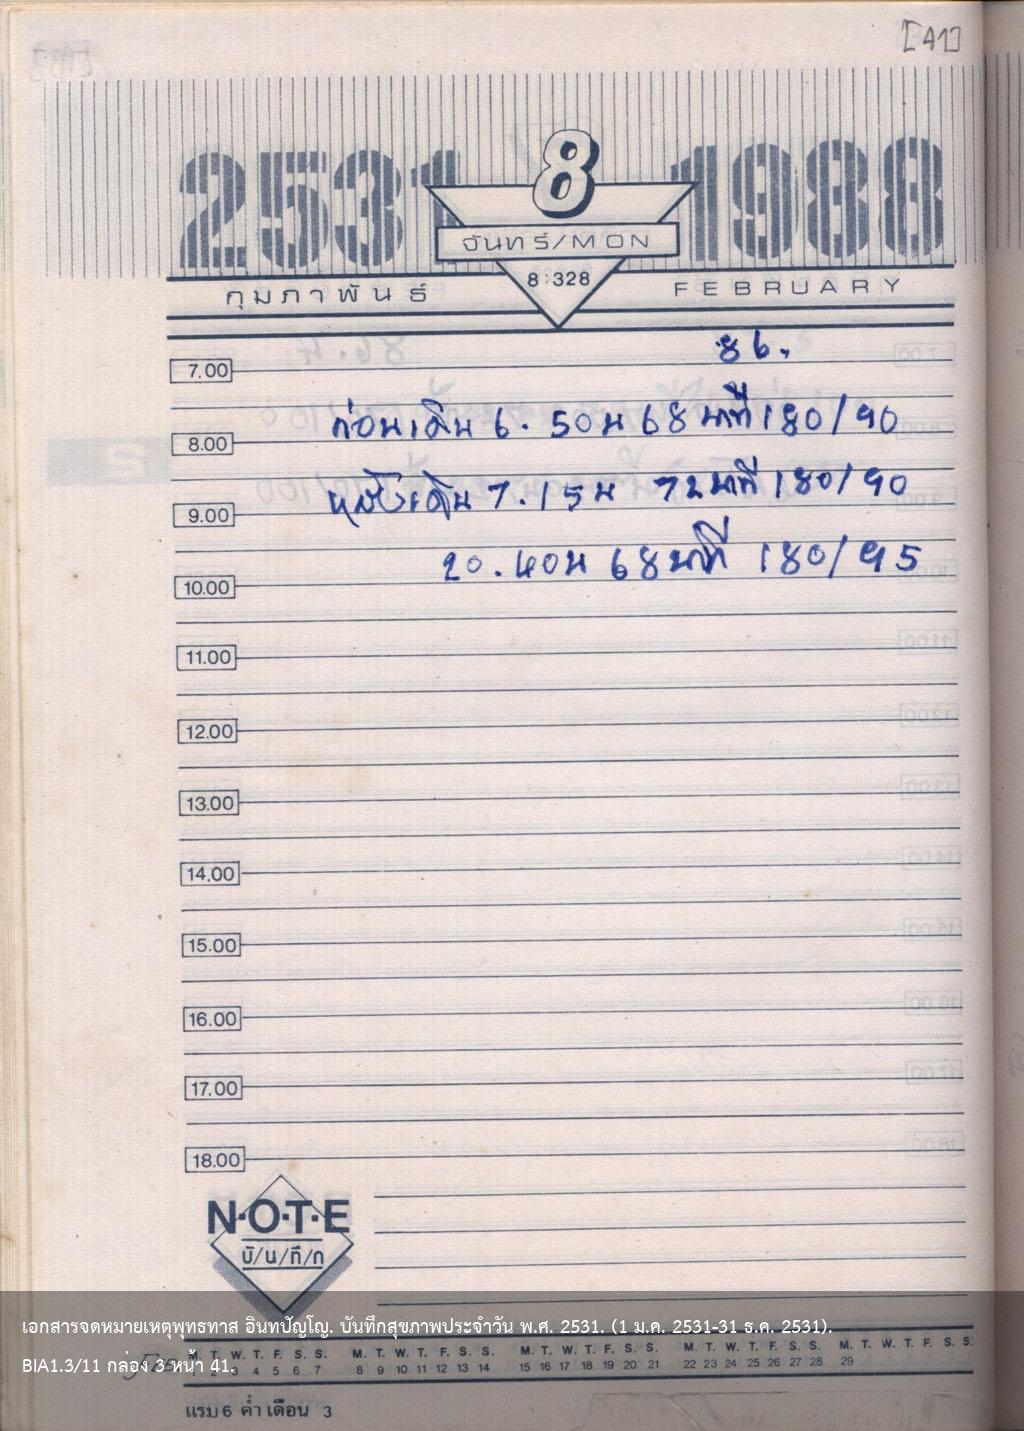 [41]
2531 8 1988
จันทร์/MON
8:328
กุมภาพันธ์ FEBRUARY
86.
7.00
ก่อนเดิน 6.50น 68 นาที 180/90
8.00
หลังเดิน 7.15น 72 นาที 180/90
9.00
20.40น 68 นาที 180/95
10.00
11.00
12.00
13.00
14.00
15.00
16.00
17.00
18.00
N·O·T·E
บั/น/ทึ/ก
เอกสารจดหมายเหตุพุทธทาส อินทปัญโญ. บันทึกสุขภาพประจำวัน พ.ศ. 2531. (1 ม.ค. 2531-31 ธ.ค. 2531).
M. T. W. T. F. S. S. M. T. W. T. F. S. S. M. T. W. T. F. S. S. M. T. W. T. F. S. S. M. T. W. T. F. S. S.
BIA1.3/11 กล่อง 3 หน้า 41.
1 2 3 4 5 6 7 8 9 10 11 12 13 14 15 16 17 18 19 20 21 22 23 24 25 26 27 28 29
แรม 6 ค่ำ เดือน 3